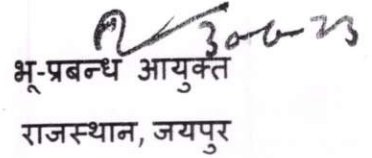 30-6-23
भू-प्रबन्ध आयुक्त
राजस्थान, जयपुर